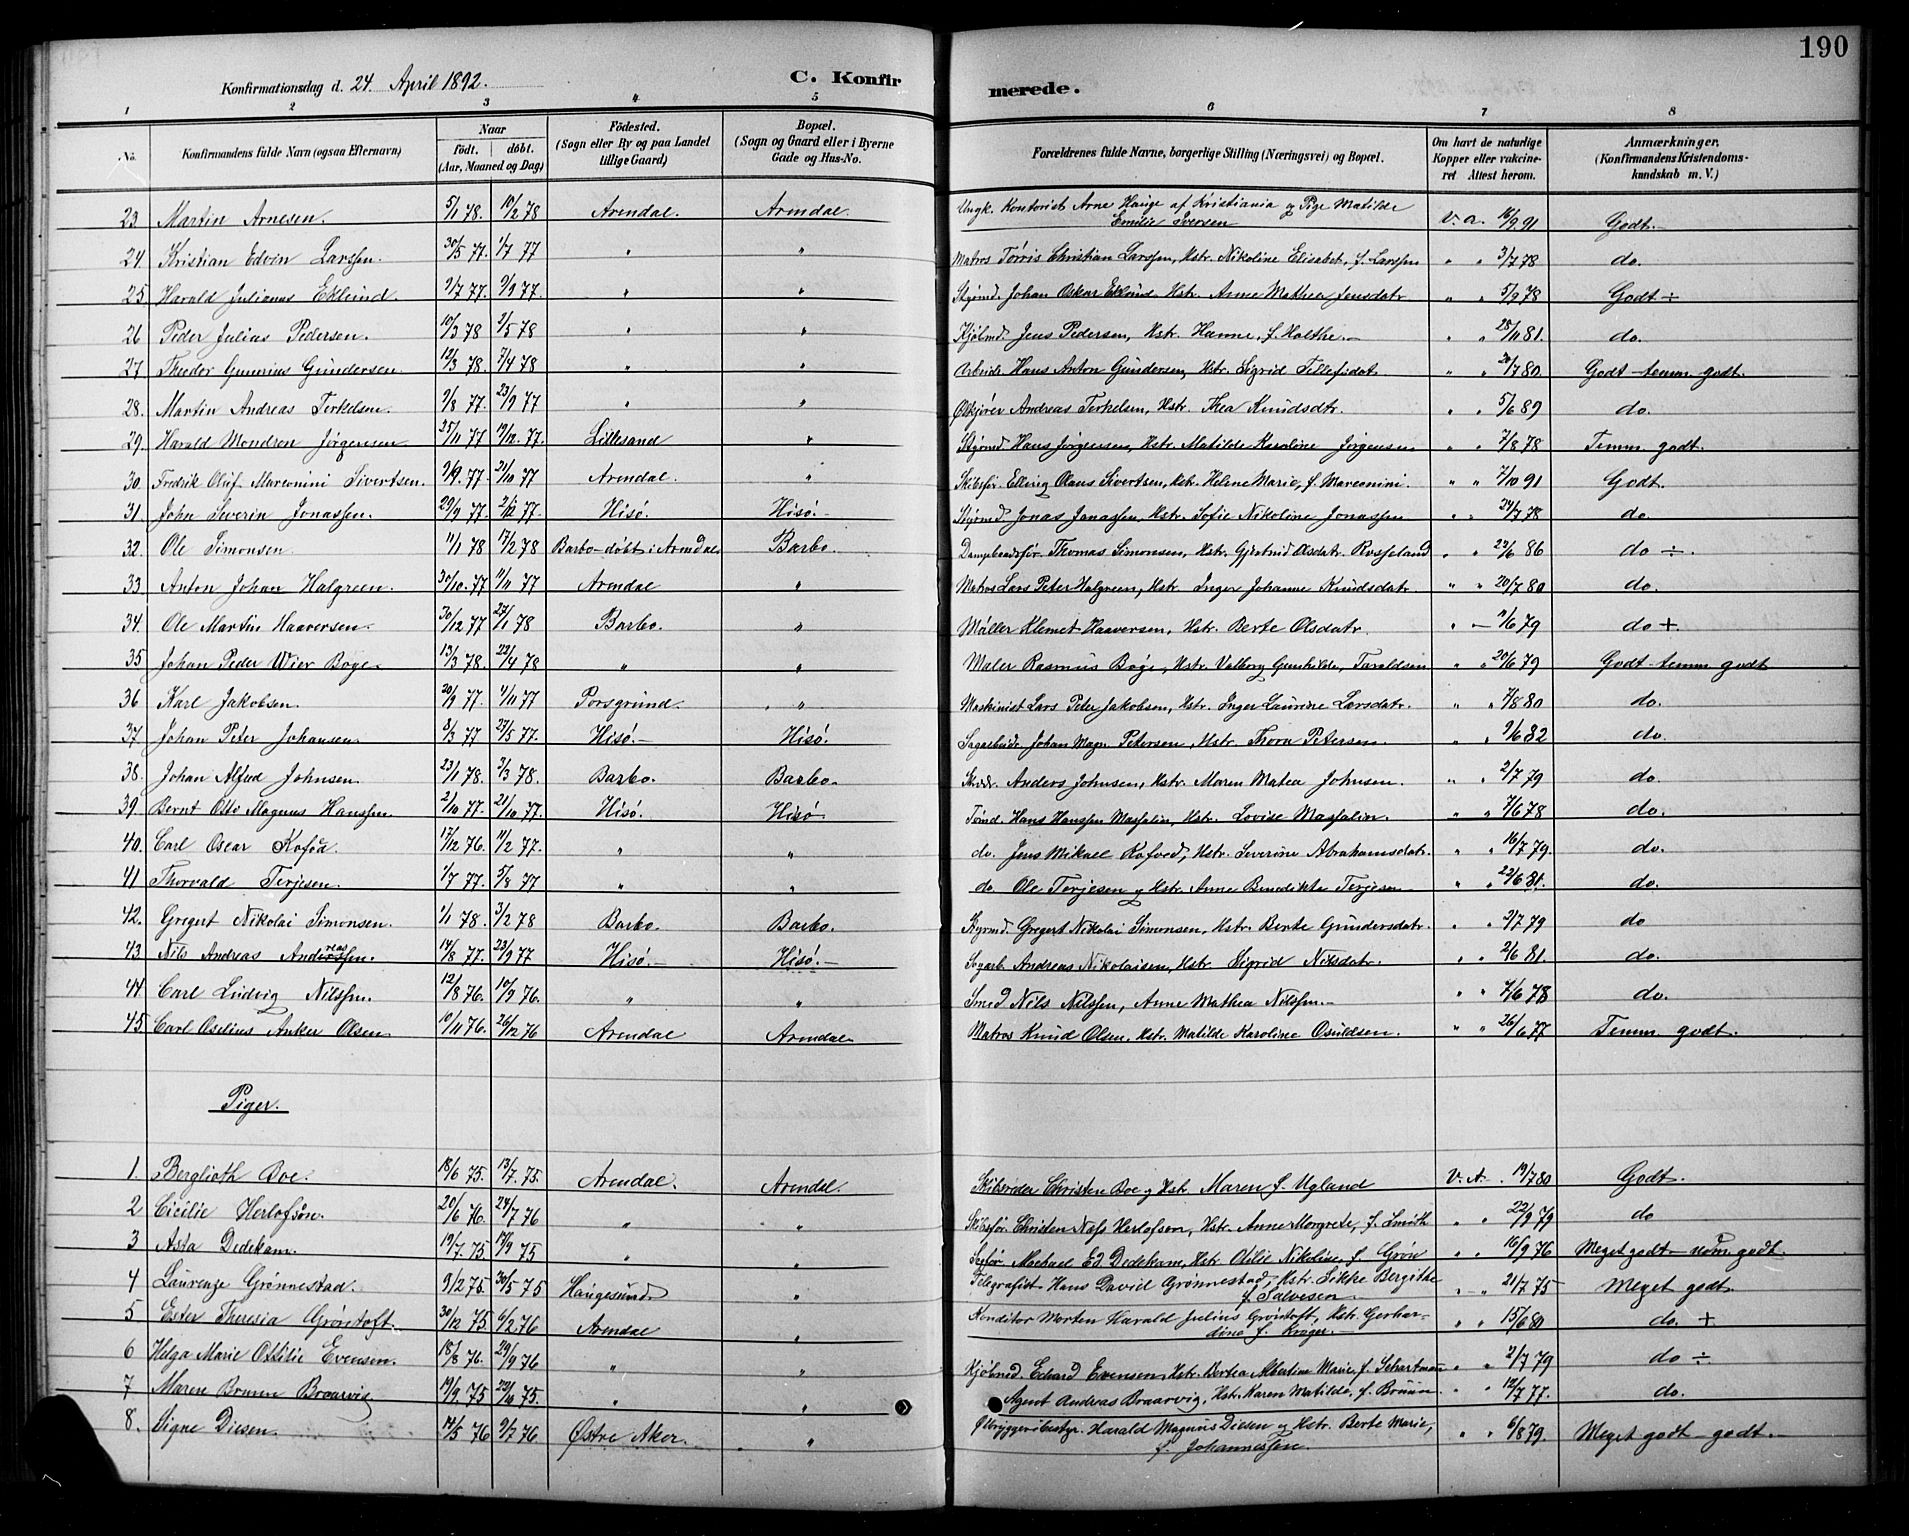 190
Konfirmationsdag d. 24. April 1892. C. Konfirmerede.
1 2 3 4 5 6 7 8
No. Konfirmandens fulde Navn (ogsaa Efternavn) Naar Födt. döbt. (Aar, Maaned og Dag) Födested. (Sogn eller By og paa Landet tillige Gaard) Bopæl. (Sogn og Gaard eller i Byerne Gade og Hus-No. Forældrenes fulde Navne, borgerlige Stilling (Næringsvei) og Bopæl. Om havt de naturlige Kopper eller vakcineret Attest herom. Anmærkninger. (Konfirmandens Kristendomskundskab m. V.)
23. Martin Arnesen. 5/1 78. 10/2 78 Arendal. Arendal. Ungk. Kontorist Arne Hauge af Kristiania og Pige Matilde Emilie Iversen v. a. 16/9 91 Godt.
24. Kristian Edvin Larssen. 30/5 77. 1/7 77 " " Matros Tørris Christian Larssen, Hstr. Nikoline Elisabet, f. Larssen " " 3/7 78 do.
25 Harald Julianus Eklund. 2/7 77. 9/9 77. " " Styrmd. Johan Oskar Eklund Hstr. Anne Mathea Jensdatr " " 5/9 78 Godt ÷
26 Peder Julius Pedersen. 10/3 78 2/5 78 " " Kjølmd. Jens Pedersen, Hstr. Hanne, f. Holthe. " " 28/11 81. do.
27. Theodor Gunerius Gundersen 12/3 78. 7/4 78 " " Arbeider Hans Anton Gundersen, Hstr. Sigrid Tellefsdat. " " 20/7 80. Godt - temm. godt.
28. Martin Andreas Terkelsen. 9/8 77. 23/9 77 " " Ølkjører Andreas Terkelsen, Hstr. Thea Knudsdtr. " " 5/6 89 do.
29. Harald Mondren Jørgensen 25/11 77 19/12. 77. Lillesand " Styrmd. Hans Jørgensen, Hstr. Matilde Karoline Jørgensen " " 7/8 78 Temm. godt.
30. Fredrik Oluf Marconini Sivertsen. 9/9. 77. 21/10 77 Arendal. " Skibsfør. Elling Olaus Sivertsen, Hstr. Helene Marie, f. Marconini. " " 7/10 91 Godt.
31. John Severin Jonassen. 29/9 77. 2/12 77. Hisö. Hisö. Styrmd. Jonas Jonassen, Hstr. Sofie Nikoline Jonassen " " 24/7 78 do.
32. Ole Simonsen. 11/1 78 17/2 78 Barbo - döbt i Arendal Barbo. Dampbaadsfør Thomas Simonsen, Hstr. Gjertrud Olsdatr. Rosseland " " 29/6 86 do ÷.
33. Anton Johan Halgreen. 30/10. 77. 11/11 77 Arendal " Matros Lars Peter Halgreen, Hstr. Inger Johanne Knudsdatr. " " 20/7 80 do.
34. Ole Martin Haaversen. 30/12 77 27/1 78 Barbo. " Møller Klemet Haaversen, Hstr. Berte Olsdatr. " — 11/6 79 do +.
35 Johan Peder Wier Bøge. 13/3 78. 22/4 78 " " Maler Rasmus Bøge, Hstr. Valborg Gunhilde, Taraldsen " " 20/6 79 Godt - temm. godt
36 Karl Jakobsen. 20/9 77. 4/11 77 Porsgrund. " Maskinist Lars Peter Jakobsen, Hstr. Inger Laurine Larsdatr. " " 7/8 80 do.
37. Johan Peter Johansen. 8/3 77 27/5 77. Hisö. Hisö. Sagarbeidr. Johan Magn. Petersen, Hstr. Thora Petersen. " " 9/6 82 do.
38. Johan Alfred Johnsen. 23/1 78. 3/3 78. Barbo. Barbo. Anders Johnsen, Hstr. Maren Matea Johnsen. " " 2/7 79 do.
39. Bernt Otto Magnus Hanssen. 2/10 77. 21/10 77. Hisö. Hisö. Tømd. Hans Hanssen Massalin, Hstr. Lovise Massalin. " " 7/6 78 do.
40. Carl Oscar Kofod. 17/12 76. 11/2 77. " " do. Jens Mikael Kofoed, Hstr. Severine Abrahamsdatr. " " 16/7 79. do.
41 Thorvald Terjesen. 1/7 77. 5/8 77 " " do. Ole Terjesen og Hstr. Anne Benedikte Terjesen " " 22/6 81. do.
42. Gregert Nikolai Simonsen. 1/1 78. 3/2 78 Barbo. Barbo. Styrmd. Gregert Nikolai Simonsen, Hstr. Berte Gundersdatr. " " 2/7 79 do
43 Nils Andreas Andreassen. 14/8 77. 23/9 77 Hisö. Hisö. Sagarb. Andreas Nikolaisen, Hstr. Sigrid Nilsdatr. " " 2/6 81. do.
44 Carl Ludvig Nilssen. 12/8 76. 10/9 76. " " Smed Nils Nilssen, Anne Mathea Nilssen. " " 7/6 78 do.
45 Carl Oselius Anker Olsen 10/11 76. 26/12 76 Arendal Arendal Matros Knud Olsen. Hstr. Matilde Karoline Osuldsen. " " 26/6 77 Temm. godt.
Piger.
1. Berglioth Boe. 18/6 75. 13/7. 75. Arendal. Arendal. Skibsrider Christen Boe og Hstr. Maren f. Ugland V. A. 19/7 80 Godt.
2 Cicilie Herlofson. 20/6 76. 24/7 76 " " Skibsfør. Christen Næss Herlofson, Hstr. Anne Margrete, f. Smith " " 22/9 79 do
3 Asta Dedekam. 19/7. 75. 17/9 75 " " Machael Ed. Dedekam, Hstr. Otilie Nikoline f. Grøn " " 16/9 76 Meget godt - godt.
4 Laurenze Grønnestad. 9/2 75. 30/5 75 Haugesund " Telegrafist Hans David Grønnestad, Hstr. Sikke Bergithe f. Salvesen " " 21/7 75 Meget godt.
5 Ester Theresia Grøntoft. 30/12 75 6/2 76 Arendal " Konditor Morten Harald Julius Grøntoft, Hstr. Gerhardine f. Krøger. " " 15/6 80 do. +
6 Helga Marie Ottilie Evensen. 18/8 76. 29/9 76 " " Kjølmd. Edvard Evensen, Hstr. Bertea Albertine Marie, f. Schartman " " 2/7 79 do ÷
7 Maren Bruun Braarvig 19/9. 75 22/10 75. " " Agent Andreas Braarvig, Hstr. Karen Matilde, f. Bruun. " " 12/7 77. do.
8. Signe Diesen. 14/5 76 9/7 76 Østre Aker. " Bryggeribestyr. Harald Magnus Diesen og Hstr. Berte Marie, f. Johannessen. " " 6/8 79. Meget godt - godt.